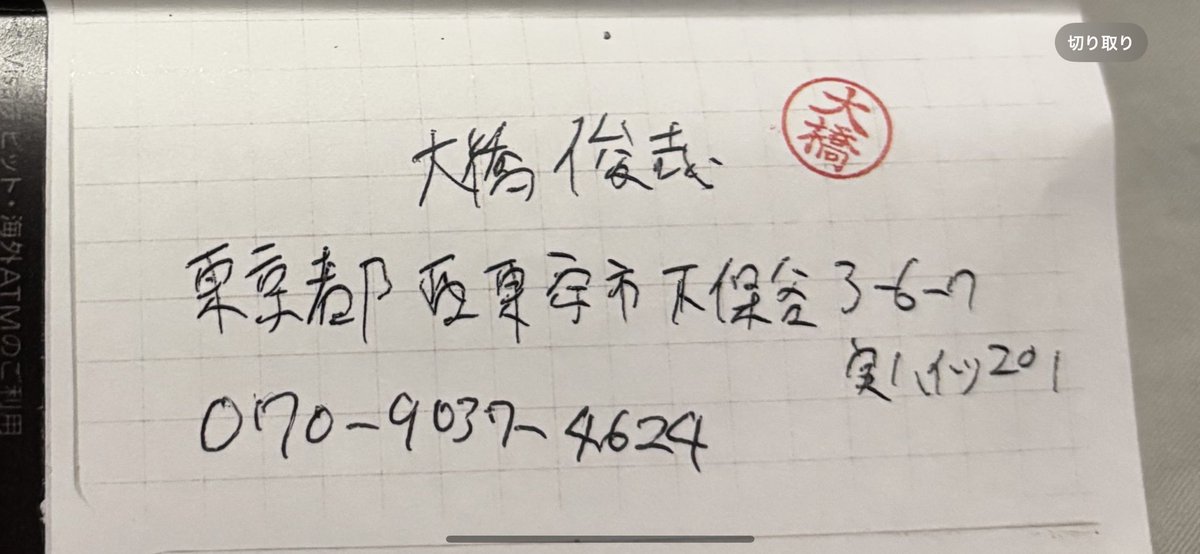 切り取り
大橋 俊哉
大橋
東京都 西東京市 下保谷 3-6-7
実ハイツ201
070-9037-4624
海外ATMのご利用